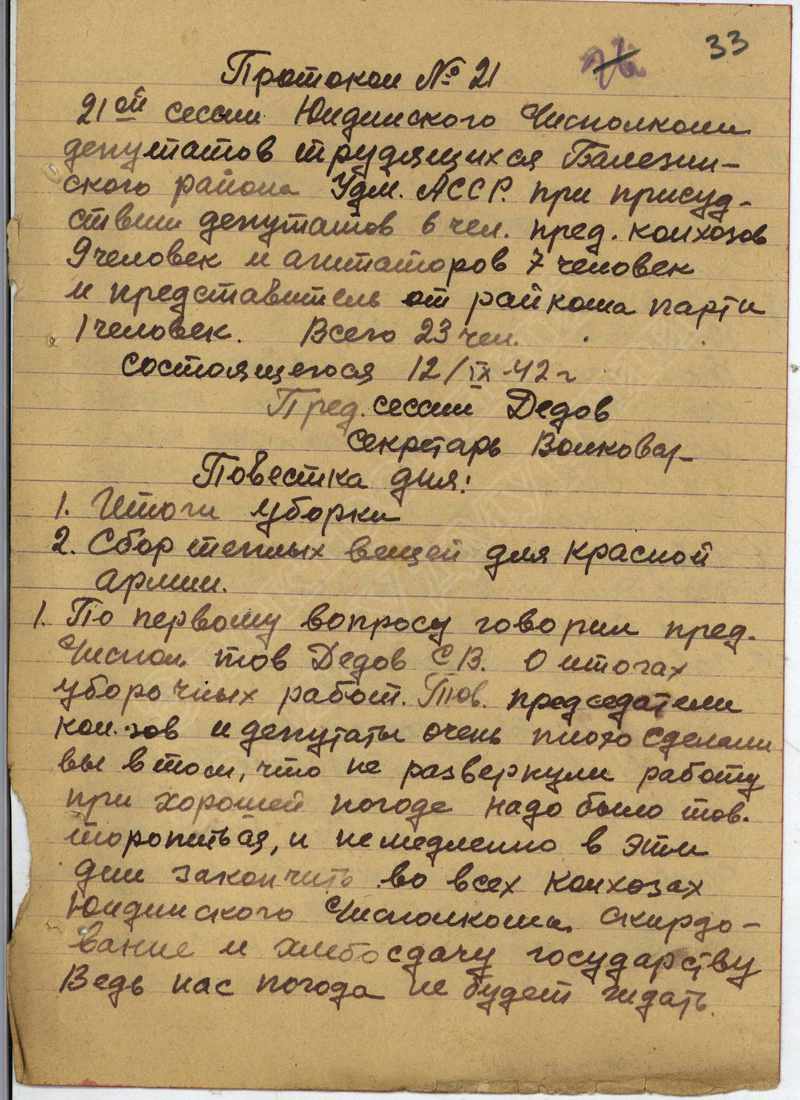 33
Протокол № 21
21ой сессии Юндинского Чисполкома
депутатов трудящихся Балезин-
ского района Удм. АССР. при присуд-
ствии депутатов 6 чел. пред. колхозов
9 человек и агитаторов 7 человек
и представитель от райкома парти
1 человек. Всего 23 чел.
состоящегося 12/IX-42 г
Пред. сессии Дедов
Секретарь Волкова
Повестка дня:
1. Итоги уборки
2. Сбор теплых вещей для красной
армии.
1. По первому вопросу говорил пред.
Чиспол тов Дедов С.В. О итогах
уборочных работ. Тов. председатели
кол.зов и депутаты очень плохо сделали
вы в том, что не развернули работу
при хорошей погоде надо было тов.
торопиться, и немедленно в эти
дни закончить во всех колхозах
Юндинского Чисполкома. скирдо-
вание и хлебосдачу государству
Ведь нас погода не будет ждать.